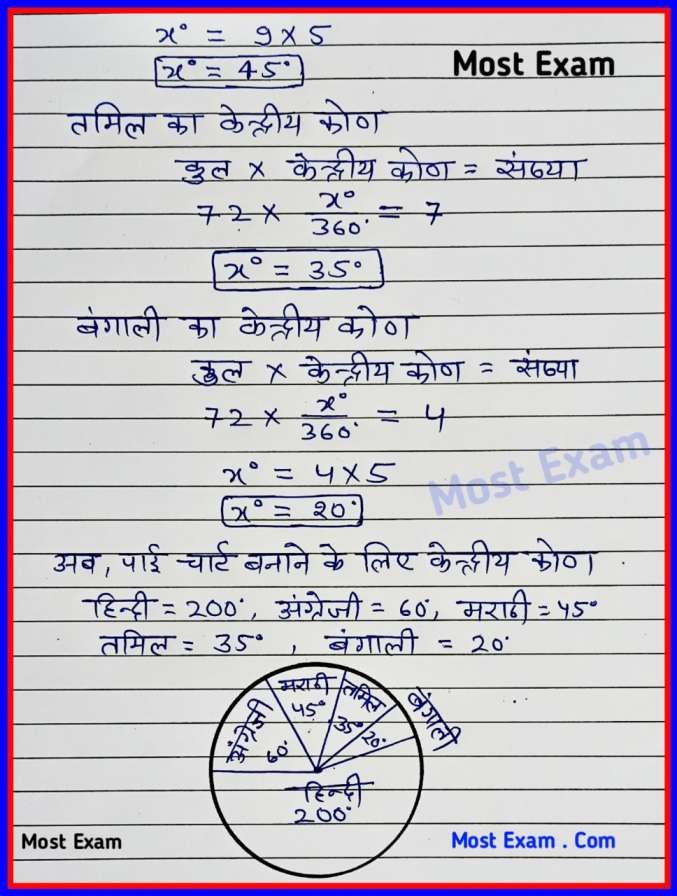 x° = 9 × 5
x° = 45°
Most Exam
तमिल का केन्द्रीय कोण
कुल × केन्द्रीय कोण = संख्या
72 × x°/360° = 7
x° = 35°
बंगाली का केन्द्रीय कोण
कुल × केन्द्रीय कोण = संख्या
72 × x°/360° = 4
x° = 4 × 5
Most Exam
x° = 20°
अब, पाई चार्ट बनाने के लिए केन्द्रीय कोण
हिन्दी = 200°, अंग्रेजी = 60°, मराठी = 45°
तमिल = 35°, बंगाली = 20°
मराठी 45°
तमिल 35°
बंगाली 20°
अंग्रेजी 60°
हिन्दी
200°
Most Exam
Most Exam . Com